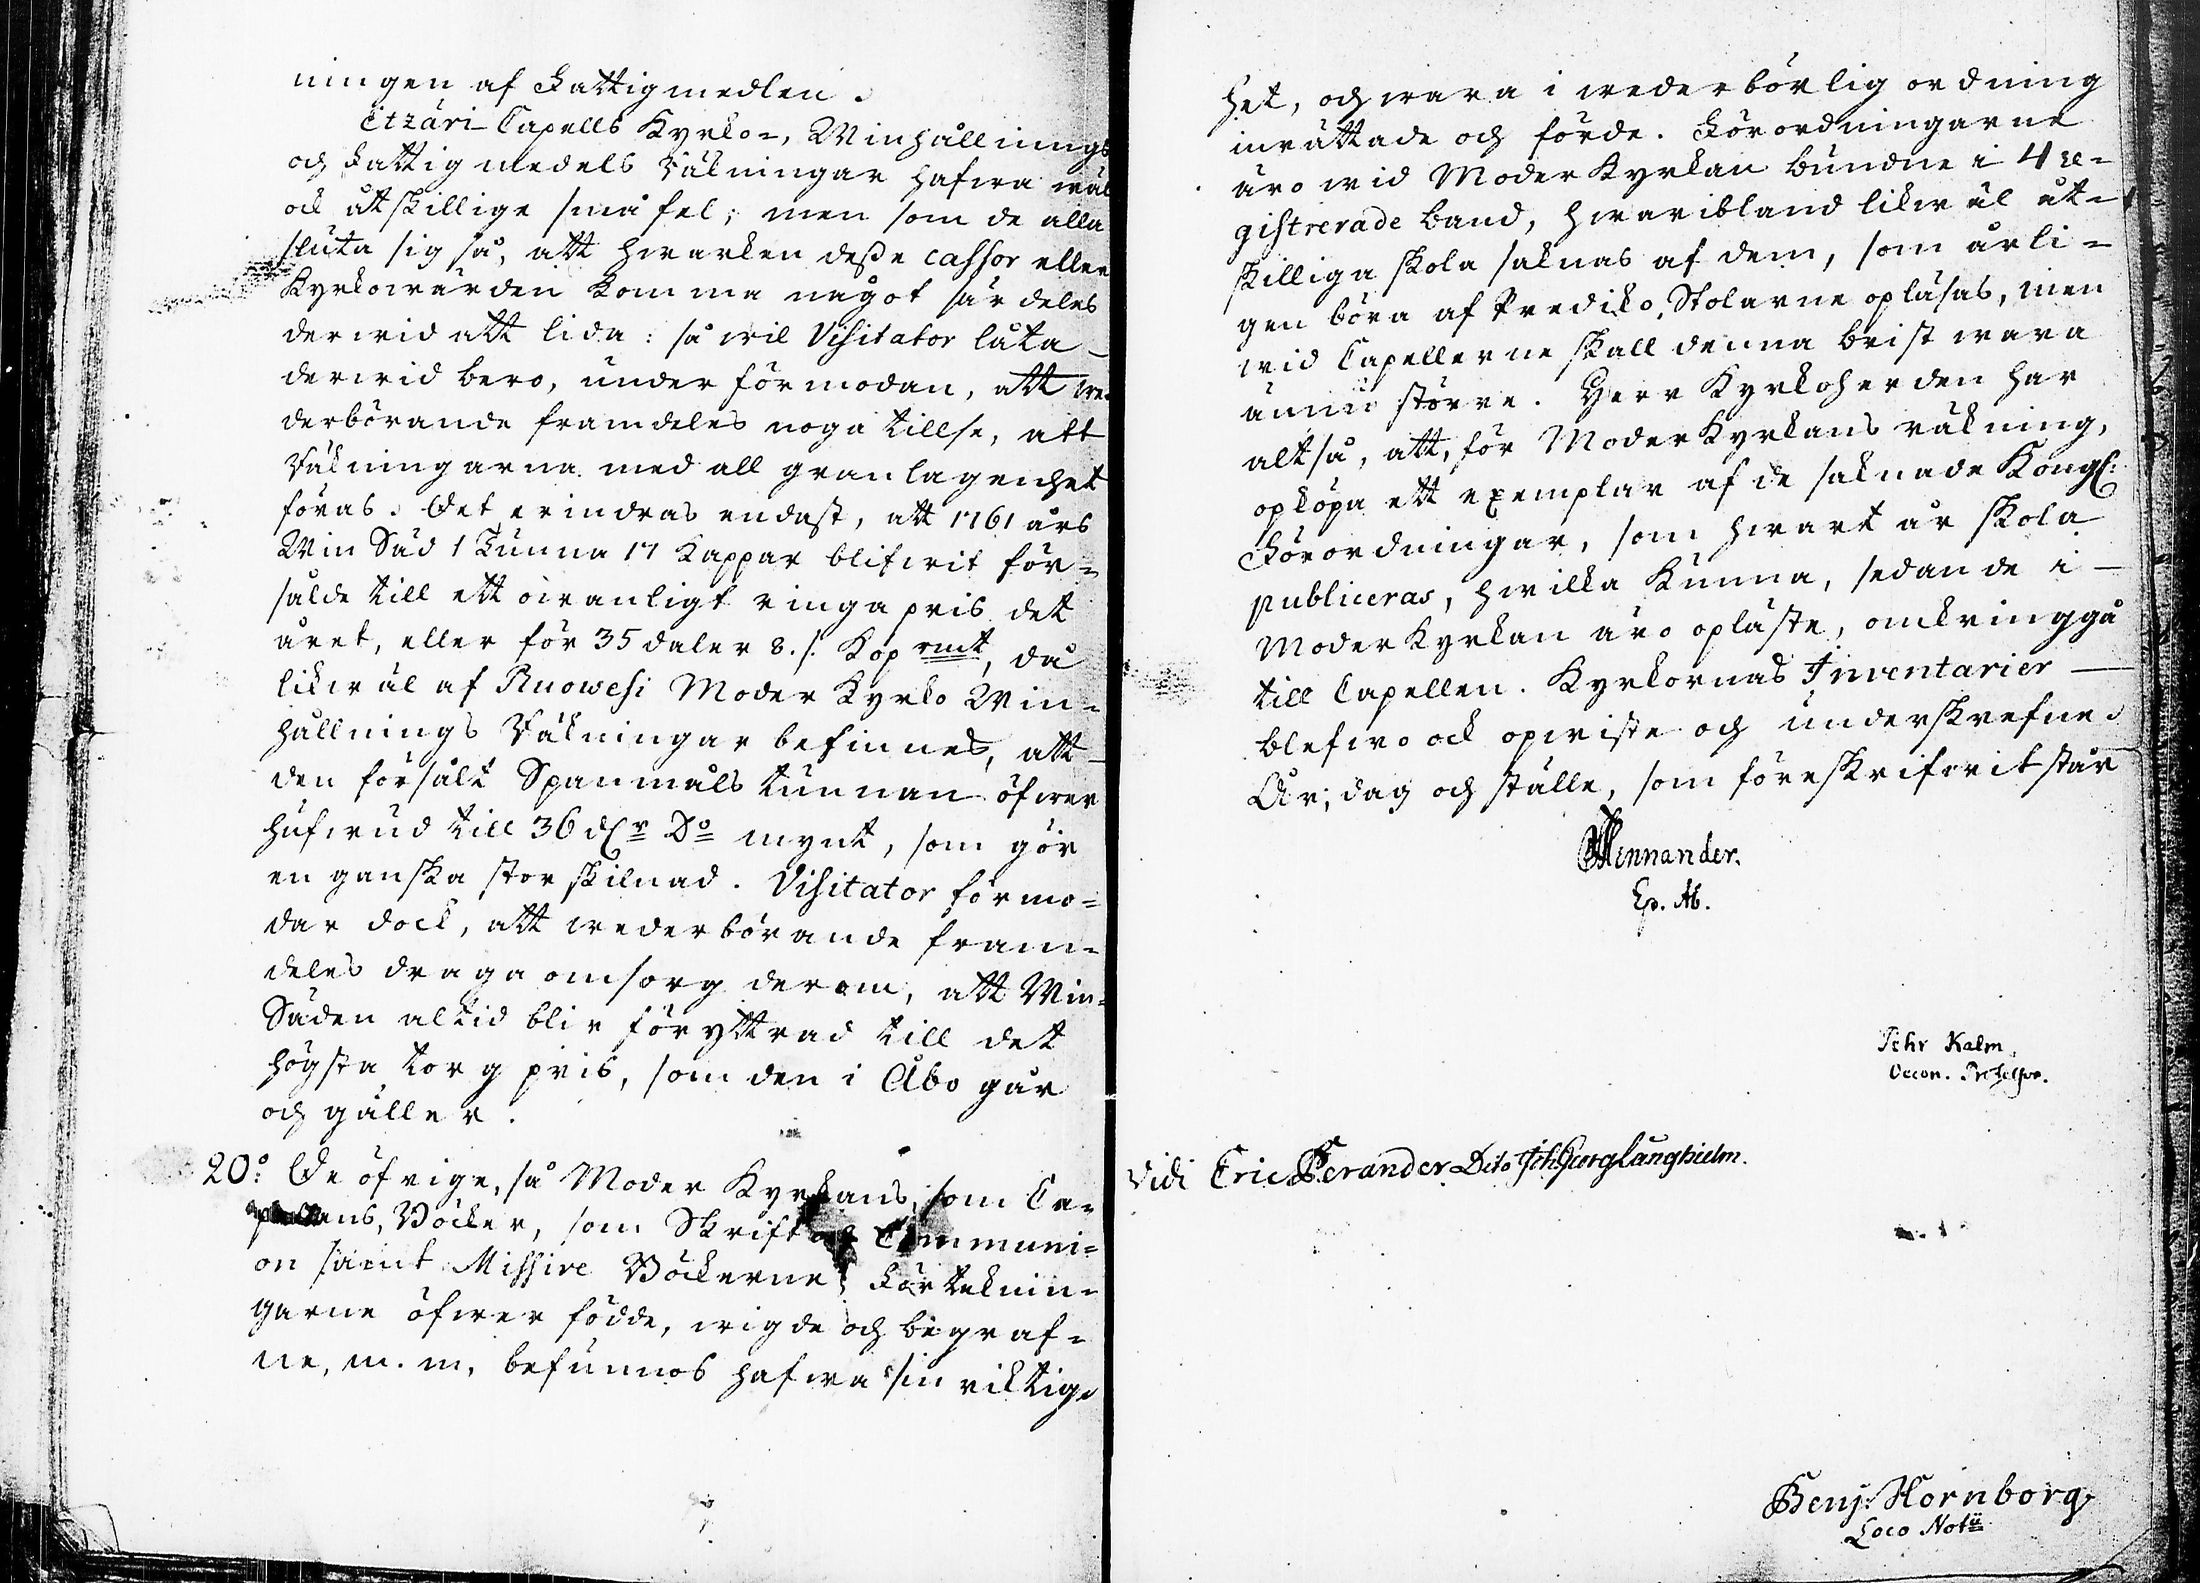 ningen af Fattigmedlen.
Etzäri Capells Kyrko-, Winhållnings
och Fattigmedels Räkningar hafwa wäl
ock åtskillige små fel; men som de alla
sluta sig så, att hwarken desse cassor eller
Kyrkowärden komma något särdeles
derwid att lida: så wil Visitator låta
derwid bero, under förmodan, att we-
derbörande framdeles noga tillse, att
Räkningarna med all granlagenhet
föras. Det erindras endast, att 1761 års
Win Säd 1 Tunna 17 Kappar blifwit för-
sålde till ett owanligt ringa pris det
året, eller för 35 daler 8./. Kopmt, då
likwäl af Ruowesi Moder Kyrko Win-
hållnings Räkningar befinnes, att
den försålt Spanmåls tunnan öfwer
hufwud till 36 dlr Do mynt, som gör
en ganska stor skilnad. Visitator förmo-
dar dock, att wederbörande fram-
deles draga omsorg derom, att Win-
Säden altid blir föryttrad till det
högsta torg pris, som den i Åbo går
och gäller.
20:o De öfrige, så Moder Kyrkans, som Ca-
pellens, Böcker, som Skrift och Communi-
on samt Missive Böckerne, Förteknin-
garne öfwer födde, wigde och begraf-
ne, m. m. befunnos hafwa sin riktig-
het, och wara i wederbörlig ordning
inrättade och förde. Förordningarne
äro wid Moder Kyrkan bundne i 4 re-
gistrerade band, hwaribland likwäl åt-
skilliga skola saknas af dem, som årli-
gen böra af Prediko Stolarne opläsas, men
wid Capellerne skall denna brist wara
ännu större. Herr Kyrkoherden har
altså, att, för Moder Kyrkans räkning,
opköpa ett exemplar af de saknade Kongl:
Förordningar, som hwart år skola
publiceras, hwilka kunna, sedan de i
Moder Kyrkan äro opläste, omkringgå
till Capellen. Kyrkornas Inventarier
blefwo ock opwiste och underskrefne.
År, dag och ställe, som föreskrifwit står
Mennander.
Ep. Ab.
Pehr Kalm.
Oecon. Professor.
Vidi Eric Ferander Dito Joh Georg Langhielm.
Benj: Hornborg
Loco Notii